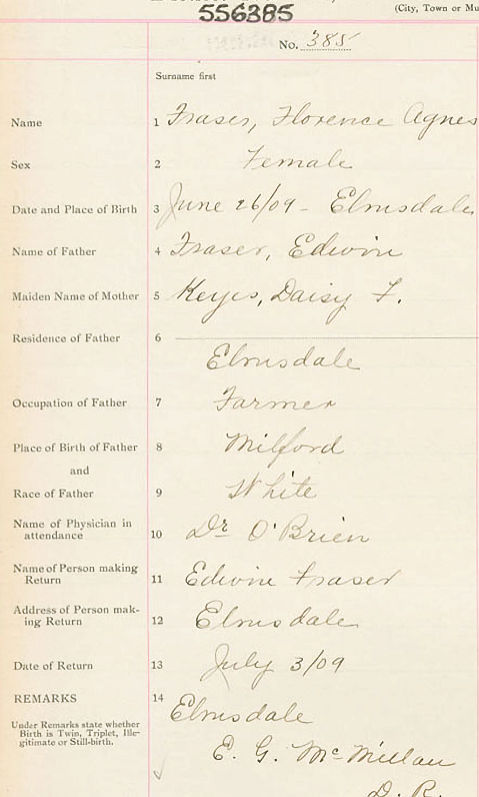 (City, Town or Mu
556385
No. 385
Surname first
Name 1 Fraser, Florence Agnes
Sex 2 Female
Date and Place of Birth 3 June 26/09 - Elmsdale
Name of Father 4 Fraser, Edwin
Maiden Name of Mother 5 Keyes, Daisy F.
Residence of Father 6
Elmsdale
Occupation of Father 7 Farmer
Place of Birth of Father 8 Milford
and
Race of Father 9 White
Name of Physician in
attendance 10 Dr O'Brien
Name of Person making
Return 11 Edwin Fraser
Address of Person mak-
ing Return 12 Elmsdale
Date of Return 13 July 3/09
REMARKS 14 Elmsdale
Under Remarks state whether
Birth is Twin, Triplet, Ille-
gitimate or Still-birth.
E. G. McMillan
D. R.